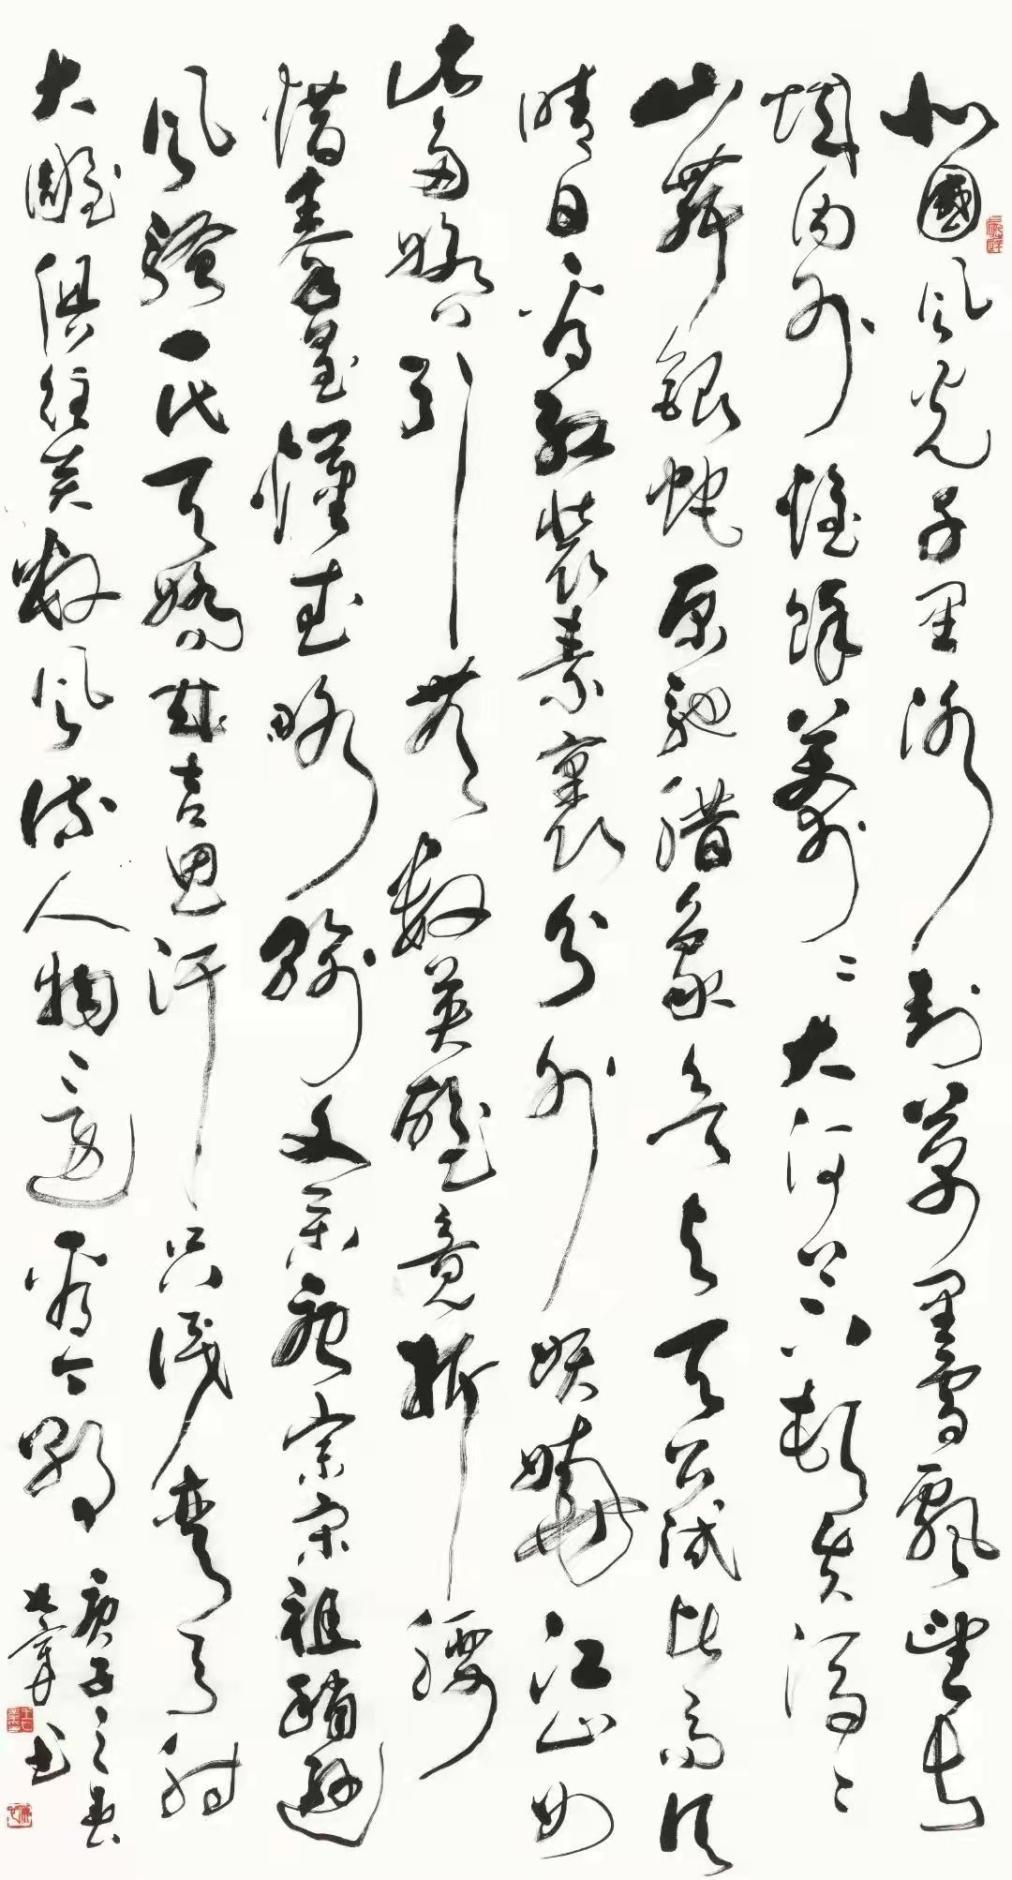 北國風光千里冰封萬里雪飄望長
城内外惟餘莽〻大河上下頓失滔〻
山舞銀蛇原馳蠟象欲與天公試比高須
晴日看紅裝素裹分外妖嬈江山如
此多嬌引無數英雄竟折腰
惜秦皇漢武略輸文采唐宗宋祖稍遜
風騷一代天驕成吉思汗只識彎弓射
大雕俱往矣數風流人物還看今朝
庚子之春
书